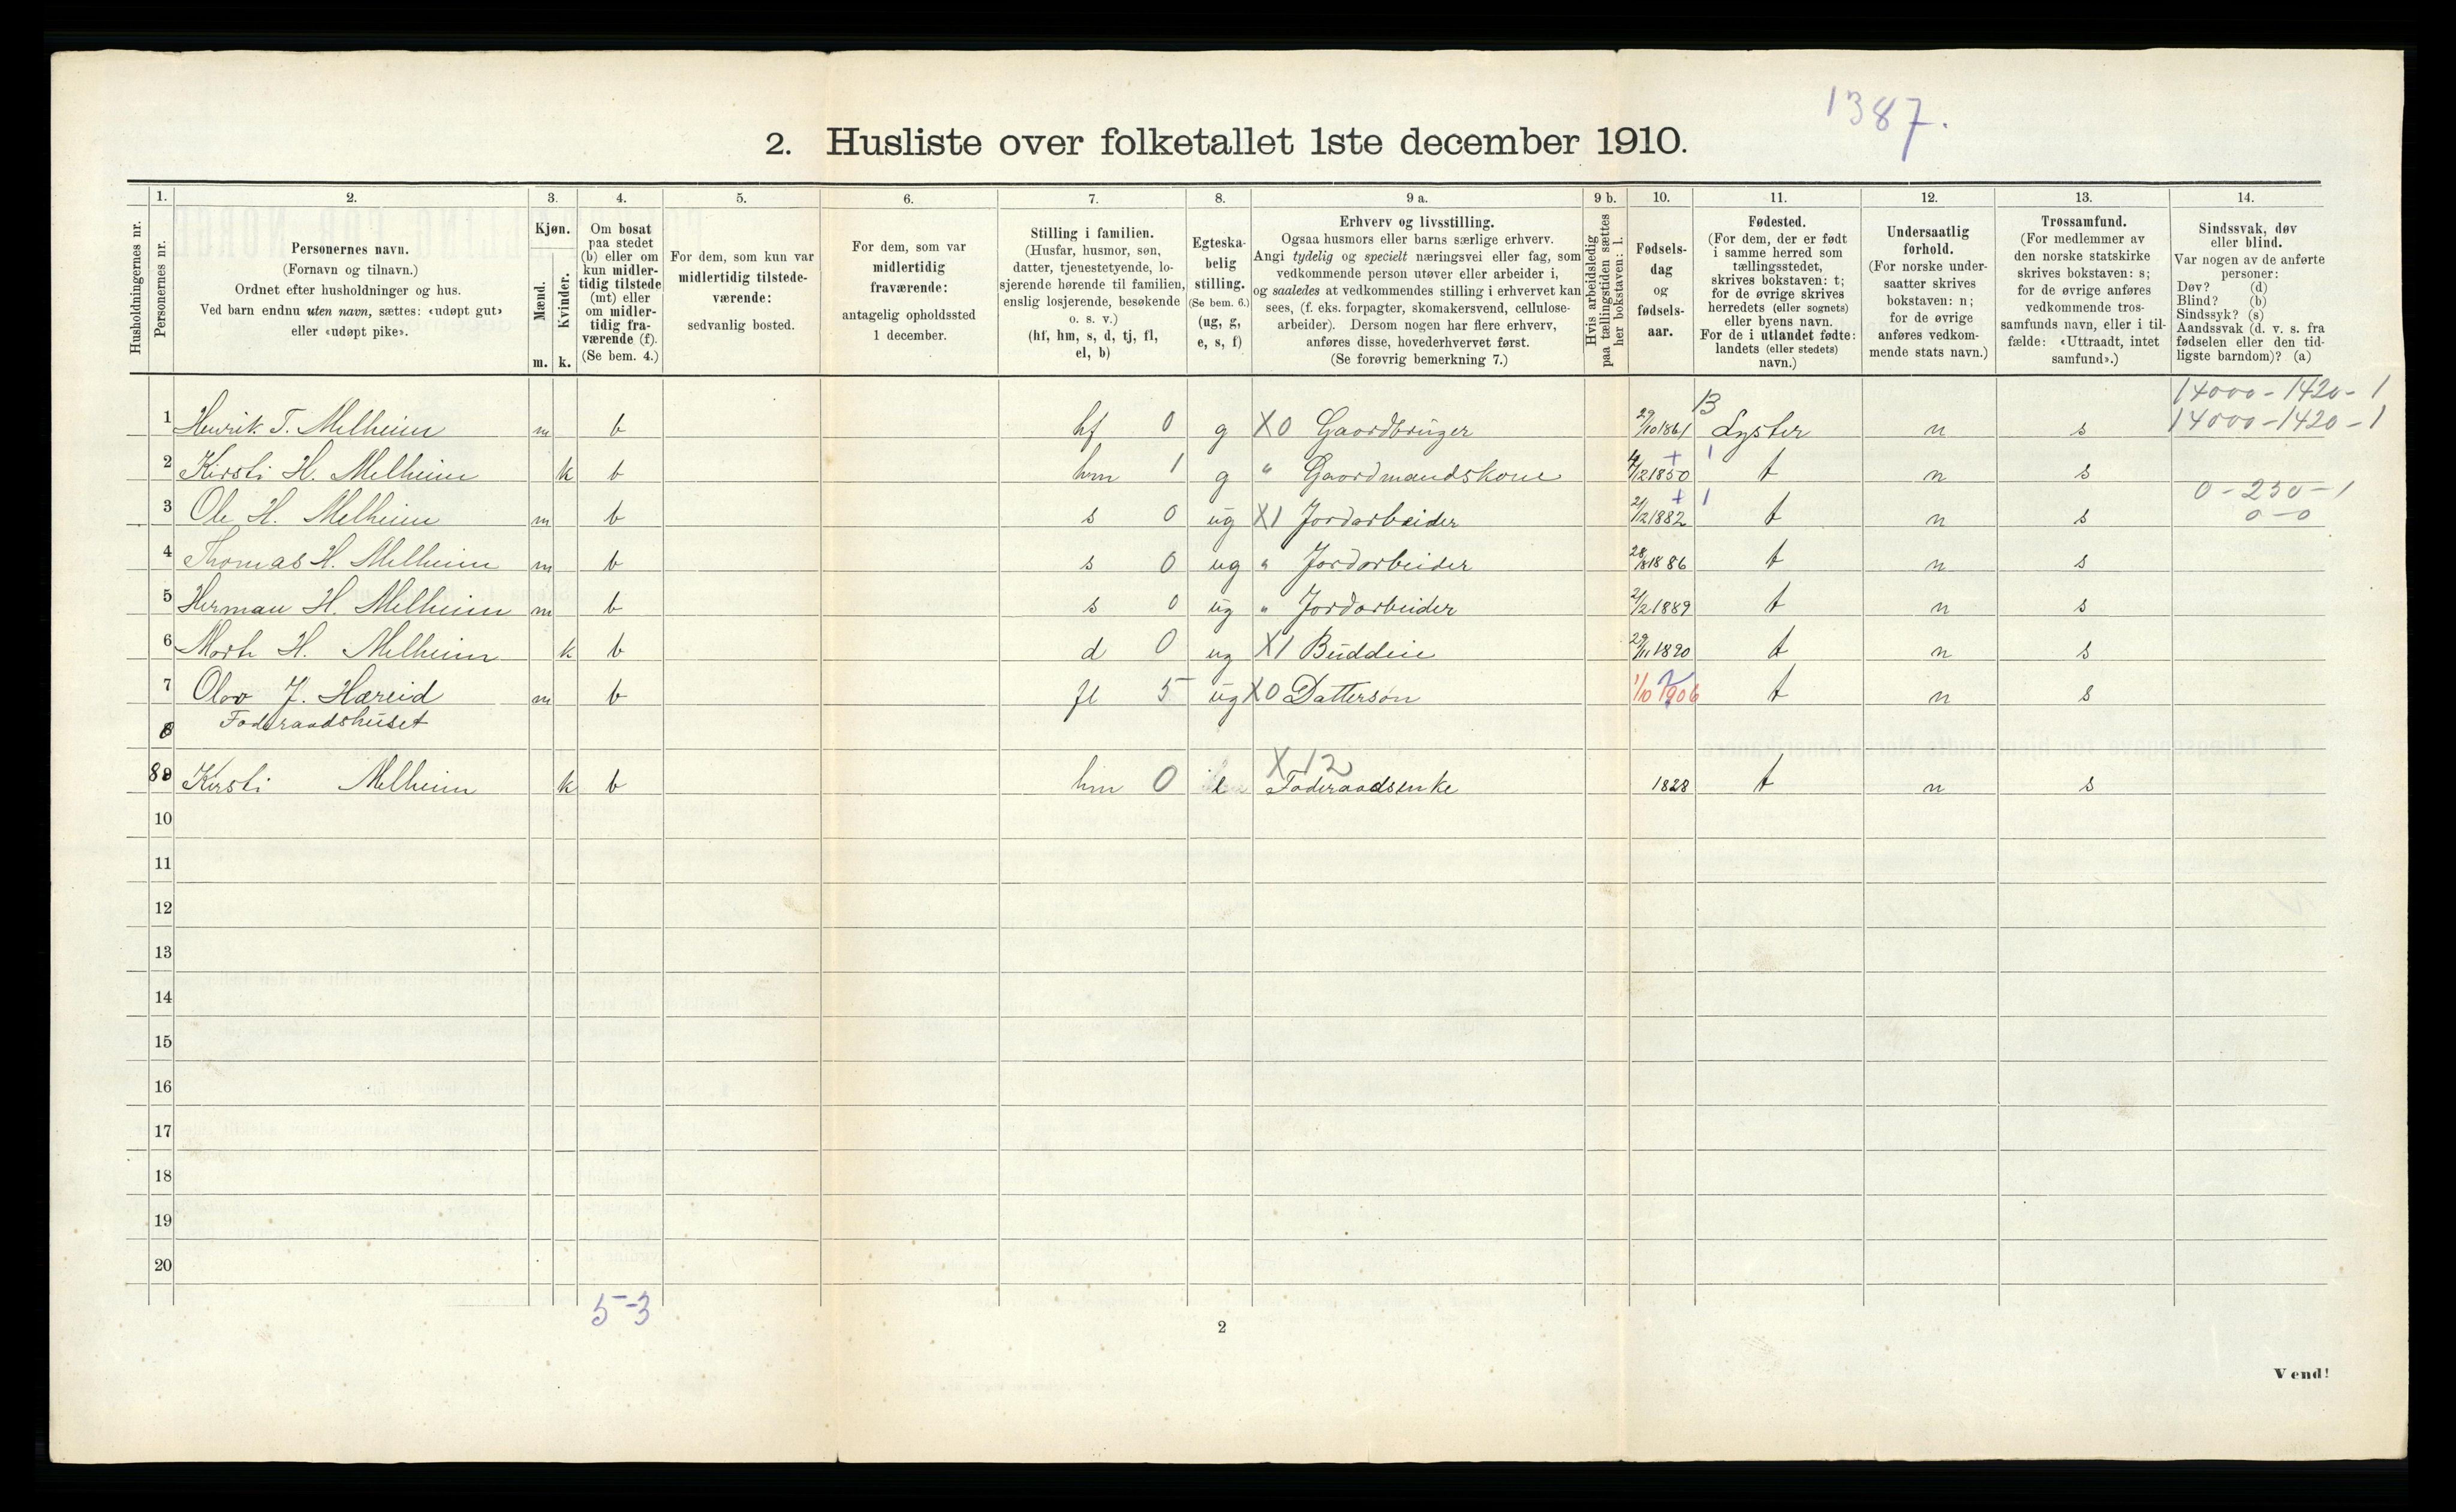 1387.
2. Husliste over folketallet 1ste december 1910.
1. 2. 3. 4. 5. 6. 7. 8. 9 a. 9 b. 10. 11. 12. 13. 14.
Husholdningernes nr.
Personernes nr.
Personernes navn.
(Fornavn og tilnavn.)
Ordnet efter husholdninger og hus.
Ved barn endnu uten navn, sættes: «udøpt gut»
eller «udøpt pike».
Kjøn.
Mænd.
Kvinder.
m. k.
Om bosat
paa stedet
(b) eller om
kun midler-
tidig tilstede
(mt) eller
om midler-
tidig fra-
værende (f).
(Se bem. 4.)
For dem, som kun var
midlertidig tilstede-
værende:
sedvanlig bosted.
For dem, som var
midlertidig
fraværende:
antagelig opholdssted
1 december.
Stilling i familien.
(Husfar, husmor, søn,
datter, tjenestetyende, lo-
sjerende hørende til familien,
enslig losjerende, besøkende
o. s. v.)
(hf, hm, s, d, tj, fl,
el, b)
Egteska-
belig
stilling.
(Se bem. 6.)
(ug, g,
e, s, f)
Erhverv og livsstilling.
Ogsaa husmors eller barns særlige erhverv.
Angi tydelig og specielt næringsvei eller fag, som
vedkommende person utøver eller arbeider i,
og saaledes at vedkommendes stilling i erhvervet kan
sees, (f. eks. forpagter, skomakersvend, cellulose-
arbeider). Dersom nogen har flere erhverv,
anføres disse, hovederhvervet først.
(Se forøvrig bemerkning 7.)
Hvis arbeidsledig
paa tællingstiden sættes
her bokstaven: l.
Fødsels-
dag
og
fødsels-
aar.
Fødested.
(For dem, der er født
i samme herred som
tællingsstedet,
skrives bokstaven: t;
for de øvrige skrives
herredets (eller sognets)
eller byens navn.
For de i utlandet fødte:
landets (eller stedets)
navn.)
Undersaatlig
forhold.
(For norske under-
saatter skrives
bokstaven: n;
for de øvrige
anføres vedkom-
mende stats navn.)
Trossamfund.
(For medlemmer av
den norske statskirke
skrives bokstaven: s;
for de øvrige anføres
vedkommende tros-
samfunds navn, eller i til-
fælde: «Uttraadt, intet
samfund».)
Sindssvak, døv
eller blind.
Var nogen av de anførte
personer:
Døv? (d)
Blind? (b)
Sindssyk? (s)
Aandssvak (d. v. s. fra
fødselen eller den tid-
ligste barndom)? (a)
14000-1420-1
13
1 Henrik T. Melheim m b hf 0 g X0 Gaardbruger 29/10 1861 Lyster n s 14000-1420-1
2 Kirsti H. Melheim k b hm 1 g " Gaardmandskone 4/12 1850 t n s
0-250-1
3 Ole H. Melheim m b s 0 ug X1 Jordarbeider 21/12 1882 t n s 0-0
4 Thomas H. Melheim m b s 0 ug " Jordarbeider 28/8 1886 t n s
5 Herman H. Melheim m b s 0 ug " Jordarbeider 21/2 1889 t n s
6 Mart H. Melheim k b d 0 ug X1 Buddeie 29/11 1890 t n s
7 Olav J. Hæreid m b fl 5 ug X0 Dattersøn 1/10 1906 t n s
8 Foderaadshuset
X12
8 9 Kirsti Melheim k b hm 0 e Foderaadsenke 1828 t n s
10
11
12
13
14
15
16
17
18
19
20
5-3
2
Vend!